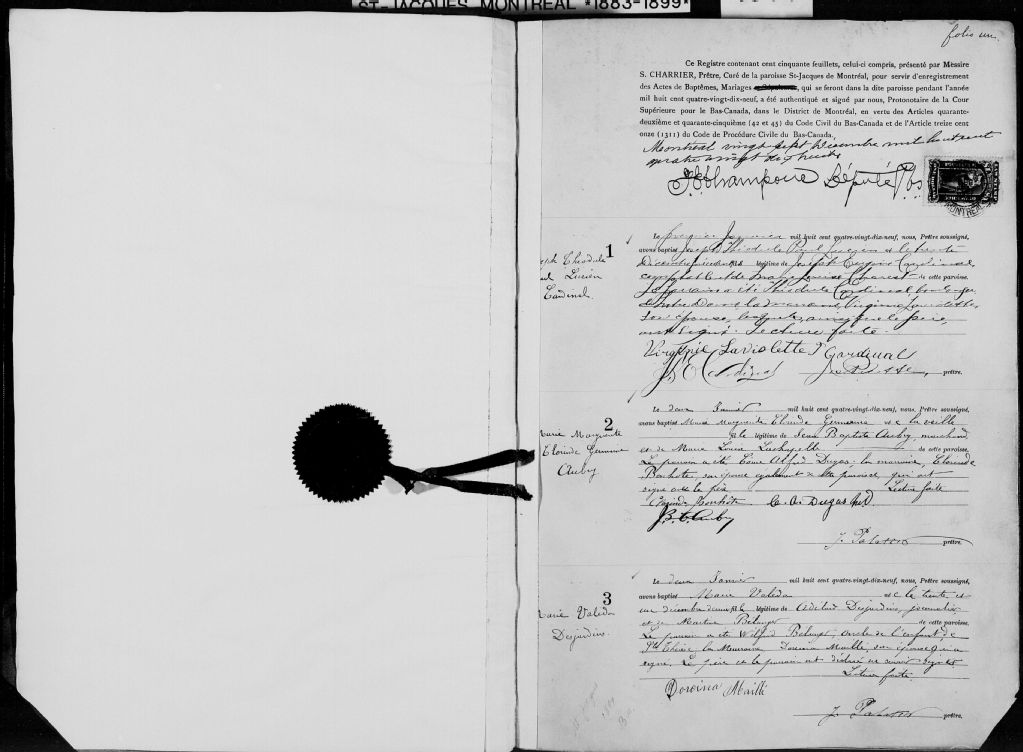 ST-JACQUES, MONTRÉAL *1883-1899*
folio un.
Ce Registre contenant cent cinquante feuillets, celui-ci compris, présenté par Messire
S. CHARRIER, Prêtre, Curé de la paroisse St-Jacques de Montréal, pour servir d'enregistrement
des Actes de Baptêmes, Mariages, qui se feront dans la dite paroisse pendant l'année
mil huit cent quatre-vingt-dix-neuf, a été authentiqué et signé par nous, Protonotaire de la Cour
Supérieure pour le Bas-Canada, dans le District de Montréal, en vertu des Articles quarante-
deuxième et quarante-cinquième (42 et 45) du Code Civil du Bas-Canada et de l'Article treize cent
onze (1311) du Code de Procédure Civile du Bas-Canada.
Montréal vingt sept Décembre mil huit cent
quatre vingt dix huit
Député
MONTREAL
1
Joseph Théodule
Paul Lucien
Cardinal.
Le premier Janvier mil huit cent quatre-vingt-dix-neuf, nous, Prêtre soussigné,
avons baptisé Joseph Théodule Paul Lucien né le trente
Décembre dernier fils légitime de Joseph Cardinal,
et de Charest de cette paroisse.
Le parrain a été Théodule Cardinal, boulanger,
la marraine, Virginie Laviolette
son épouse, lesquels, ainsi que le père,
ont signé. Lecture faite.
Virginie Laviolette T Cardinal
J. E. Cardinal
prêtre.
2
Marie Marguerite
Clorinde Germaine
Aubry
Le deux Janvier mil huit cent quatre-vingt-dix-neuf, nous, Prêtre soussigné,
avons baptisé Marie Marguerite Clorinde Germaine née la veille
fille légitime de Jean Baptiste Aubry, marchand
et de Marie Louise de cette paroisse.
Le parrain a été Alfred Dugas; la marraine, Clorinde
son épouse également de cette paroisse, qui ont
signé avec le père Lecture faite
C. A. Dugas M.D.
J.B.E. Aubry
prêtre.
3
Marie Valéda
Desjardins.
Le deux Janvier mil huit cent quatre-vingt-dix-neuf, nous, Prêtre soussigné,
avons baptisé Marie Valéda née le trente et
un décembre dernier fille légitime de Adélard Desjardins, journalier
et de Martine Bélanger de cette paroisse.
Le parrain a été Wilfrid Bélanger, oncle de l'enfant, de
Ste Thérèse, la Marraine Dorvina Maillé, son épouse qui a
signé. Le père et le parrain ont déclaré ne savoir signer
Lecture faite.
Dorvina Maillé
prêtre.